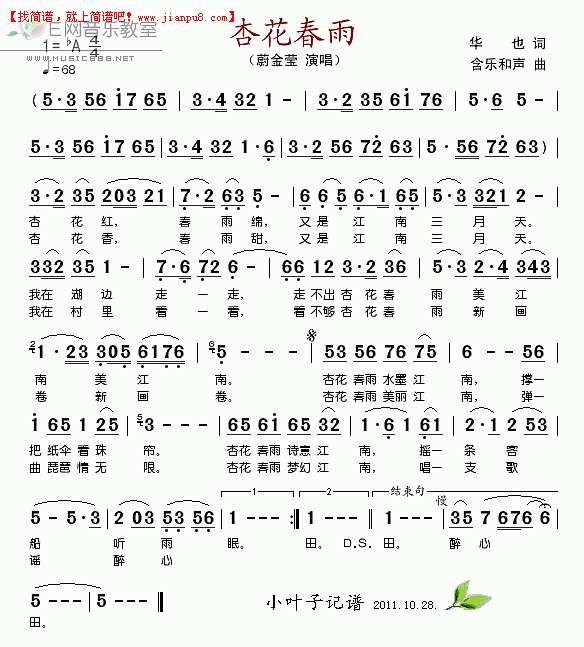 【找简谱，就上简谱吧！www.jianpu8.com】
E网音乐教室
WWW.MUSIC8.COM
杏花春雨
1=♭A 4/4
♩=68
（蔚金莹 演唱）
华 也 词
含乐和声 曲
( 5·3 56 i7 65 | 3·4 32 5 - | 3·2 35 61 76 |
5·3 56 i7 65 | 3·4 32 1·6 | 3·2 56 72 63 | 5·56 72 63 )
3·2 35 203 21 | 7·2 63 5 - | 6 65 6·1 65 | 5·3 321 2 - |
杏 花 红， 春 雨 绵， 又 是 江 南 三 月 天。
杏 花 香， 春 雨 甜， 又 是 江 南 三 月 天。
332 35 1 - | 7·6 72 6 - | 66 12 3·2 35 | 5·3 2·4 343 |
我在 湖 边 走 一 走， 走 不出 杏 花 春 雨 美 江
我在 村 里 看 一 看， 看 不够 杏 花 春 雨 新 画
1·23 305 6176 | 5 - - | 53 56 76 75 | 6 - - 56 |
南 美 江 南。 杏花 春雨 水墨 江 南， 撑一
卷 新 画 卷。 杏花 春雨 美丽 江 南， 弹一
i 65 1 25 | 3 - - | 65 65 12 35 | 2·1 6·1 | 2·1 2 53 |
把 纸伞 看 珠 帘。 杏花 春雨 诗意 江 南， 摇一 条 客
曲 琵琶 情 无 限。 杏花 春雨 梦幻 江 南， 唱一 支 歌
5 - 5·3 | 2 03 53 56 | 1 - - - :| 1 - - - | 1 - - - | 35 7 676 6 |
1 2 结束句 慢
船 听 雨 眠。 田。 D.S. 田。 醉 心
谣 醉 心
5 - - - | 5 - - - ‖
田。
小叶子记谱 2011.10.28.